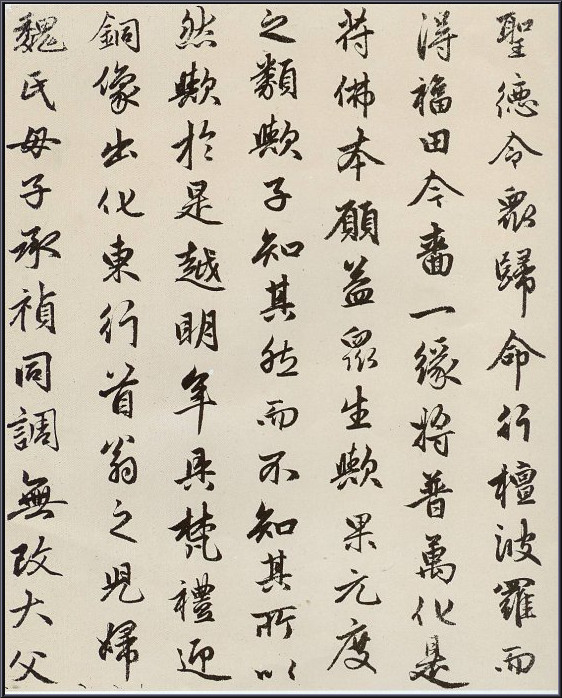 聖德令眾歸命行檀波羅而
得福田今嗇一緣將普萬化是
特佛本願益眾生歟果元度
之類歟子知其然而不知其所以
然歟於是越明年具梵禮迎
銅像出化東行首翁之兒婦
魏氏母子承禎同調無改大父